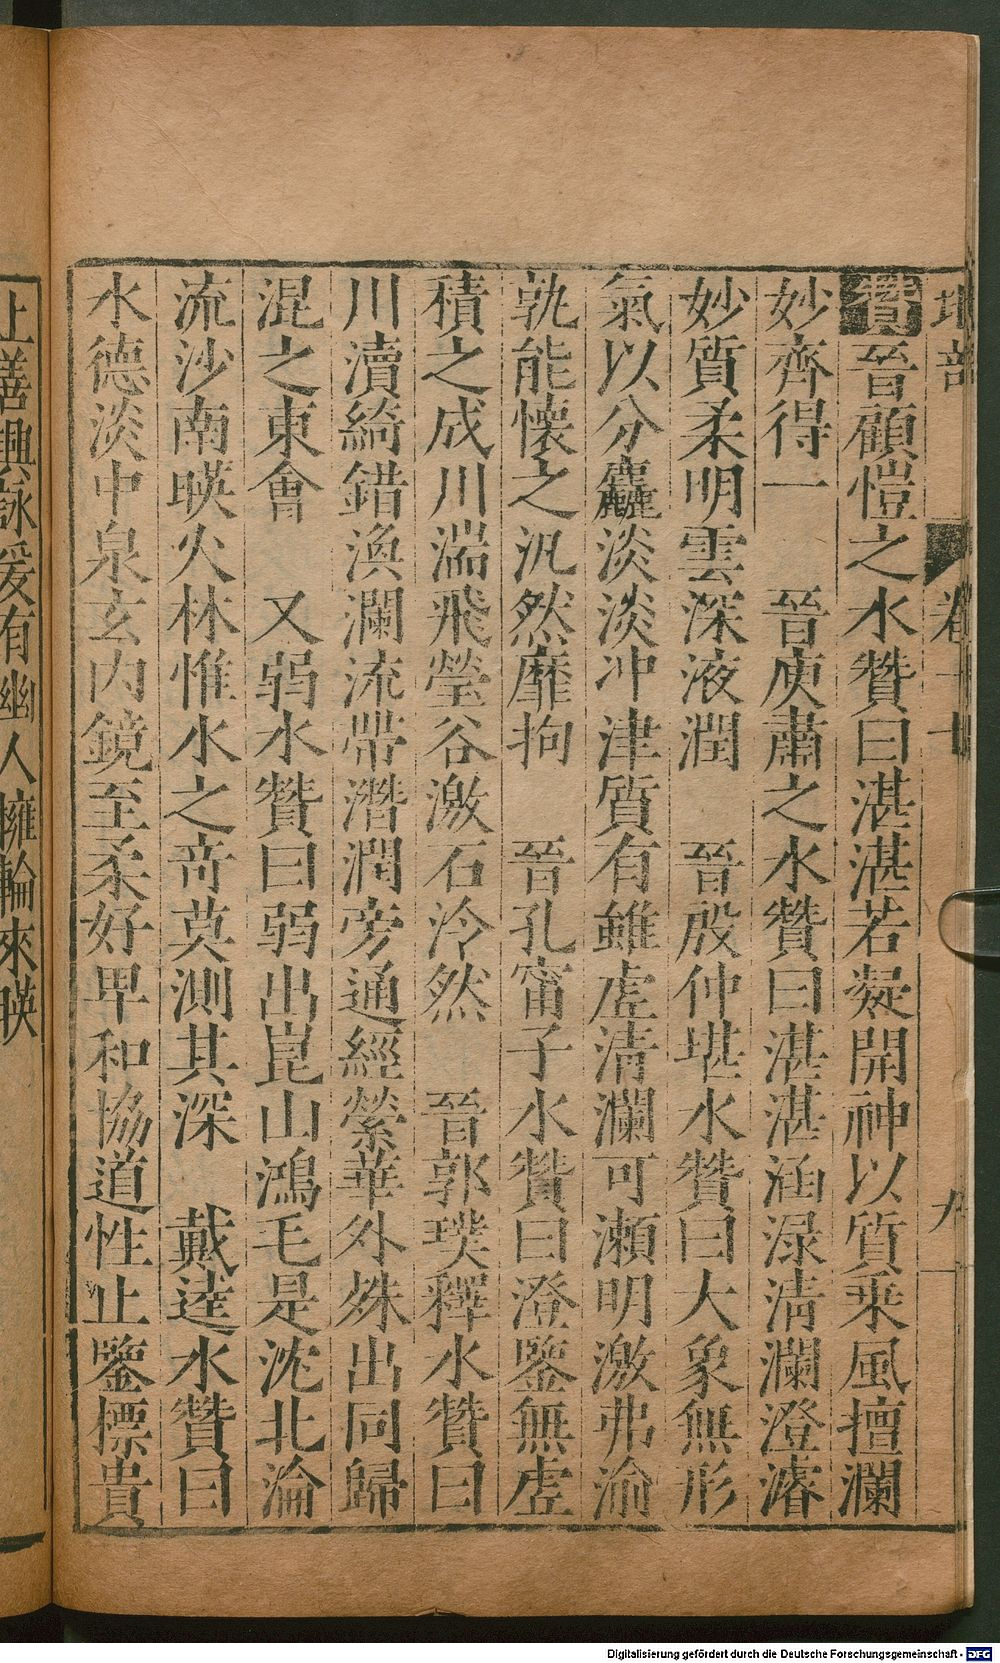 地部 卷十七 九
贊晉顧愷之水贊曰湛湛若凝開神以質乗風擅瀾
妙齊得一 晉庾肅之水贊曰湛湛涵淥清瀾澄濬
妙質柔明雲深液潤 晉殷仲堪水贊曰大象無形
氣以分麤淡淡冲津質有雖虛清瀾可瀬明激弗渝
孰能懷之汎然靡拘 晉孔甯子水贊曰澄鑒無虛
積之成川湍飛瑩谷激石泠然 晉郭璞釋水贊曰
川瀆綺錯渙瀾流帶潛潤旁通經縈華外殊出同歸
混之東會 又弱水贊曰弱出崑山鴻毛是沈北淪
流沙南暎火林惟水之竒莫測其深 戴逵水贊曰
水德淡中泉玄内鏡至柔好卑和協道性止鑒標貴
上善興詠爰有幽人擁輪來暎
Digitalisierung gefördert durch die Deutsche Forschungsgemeinschaft - DFG